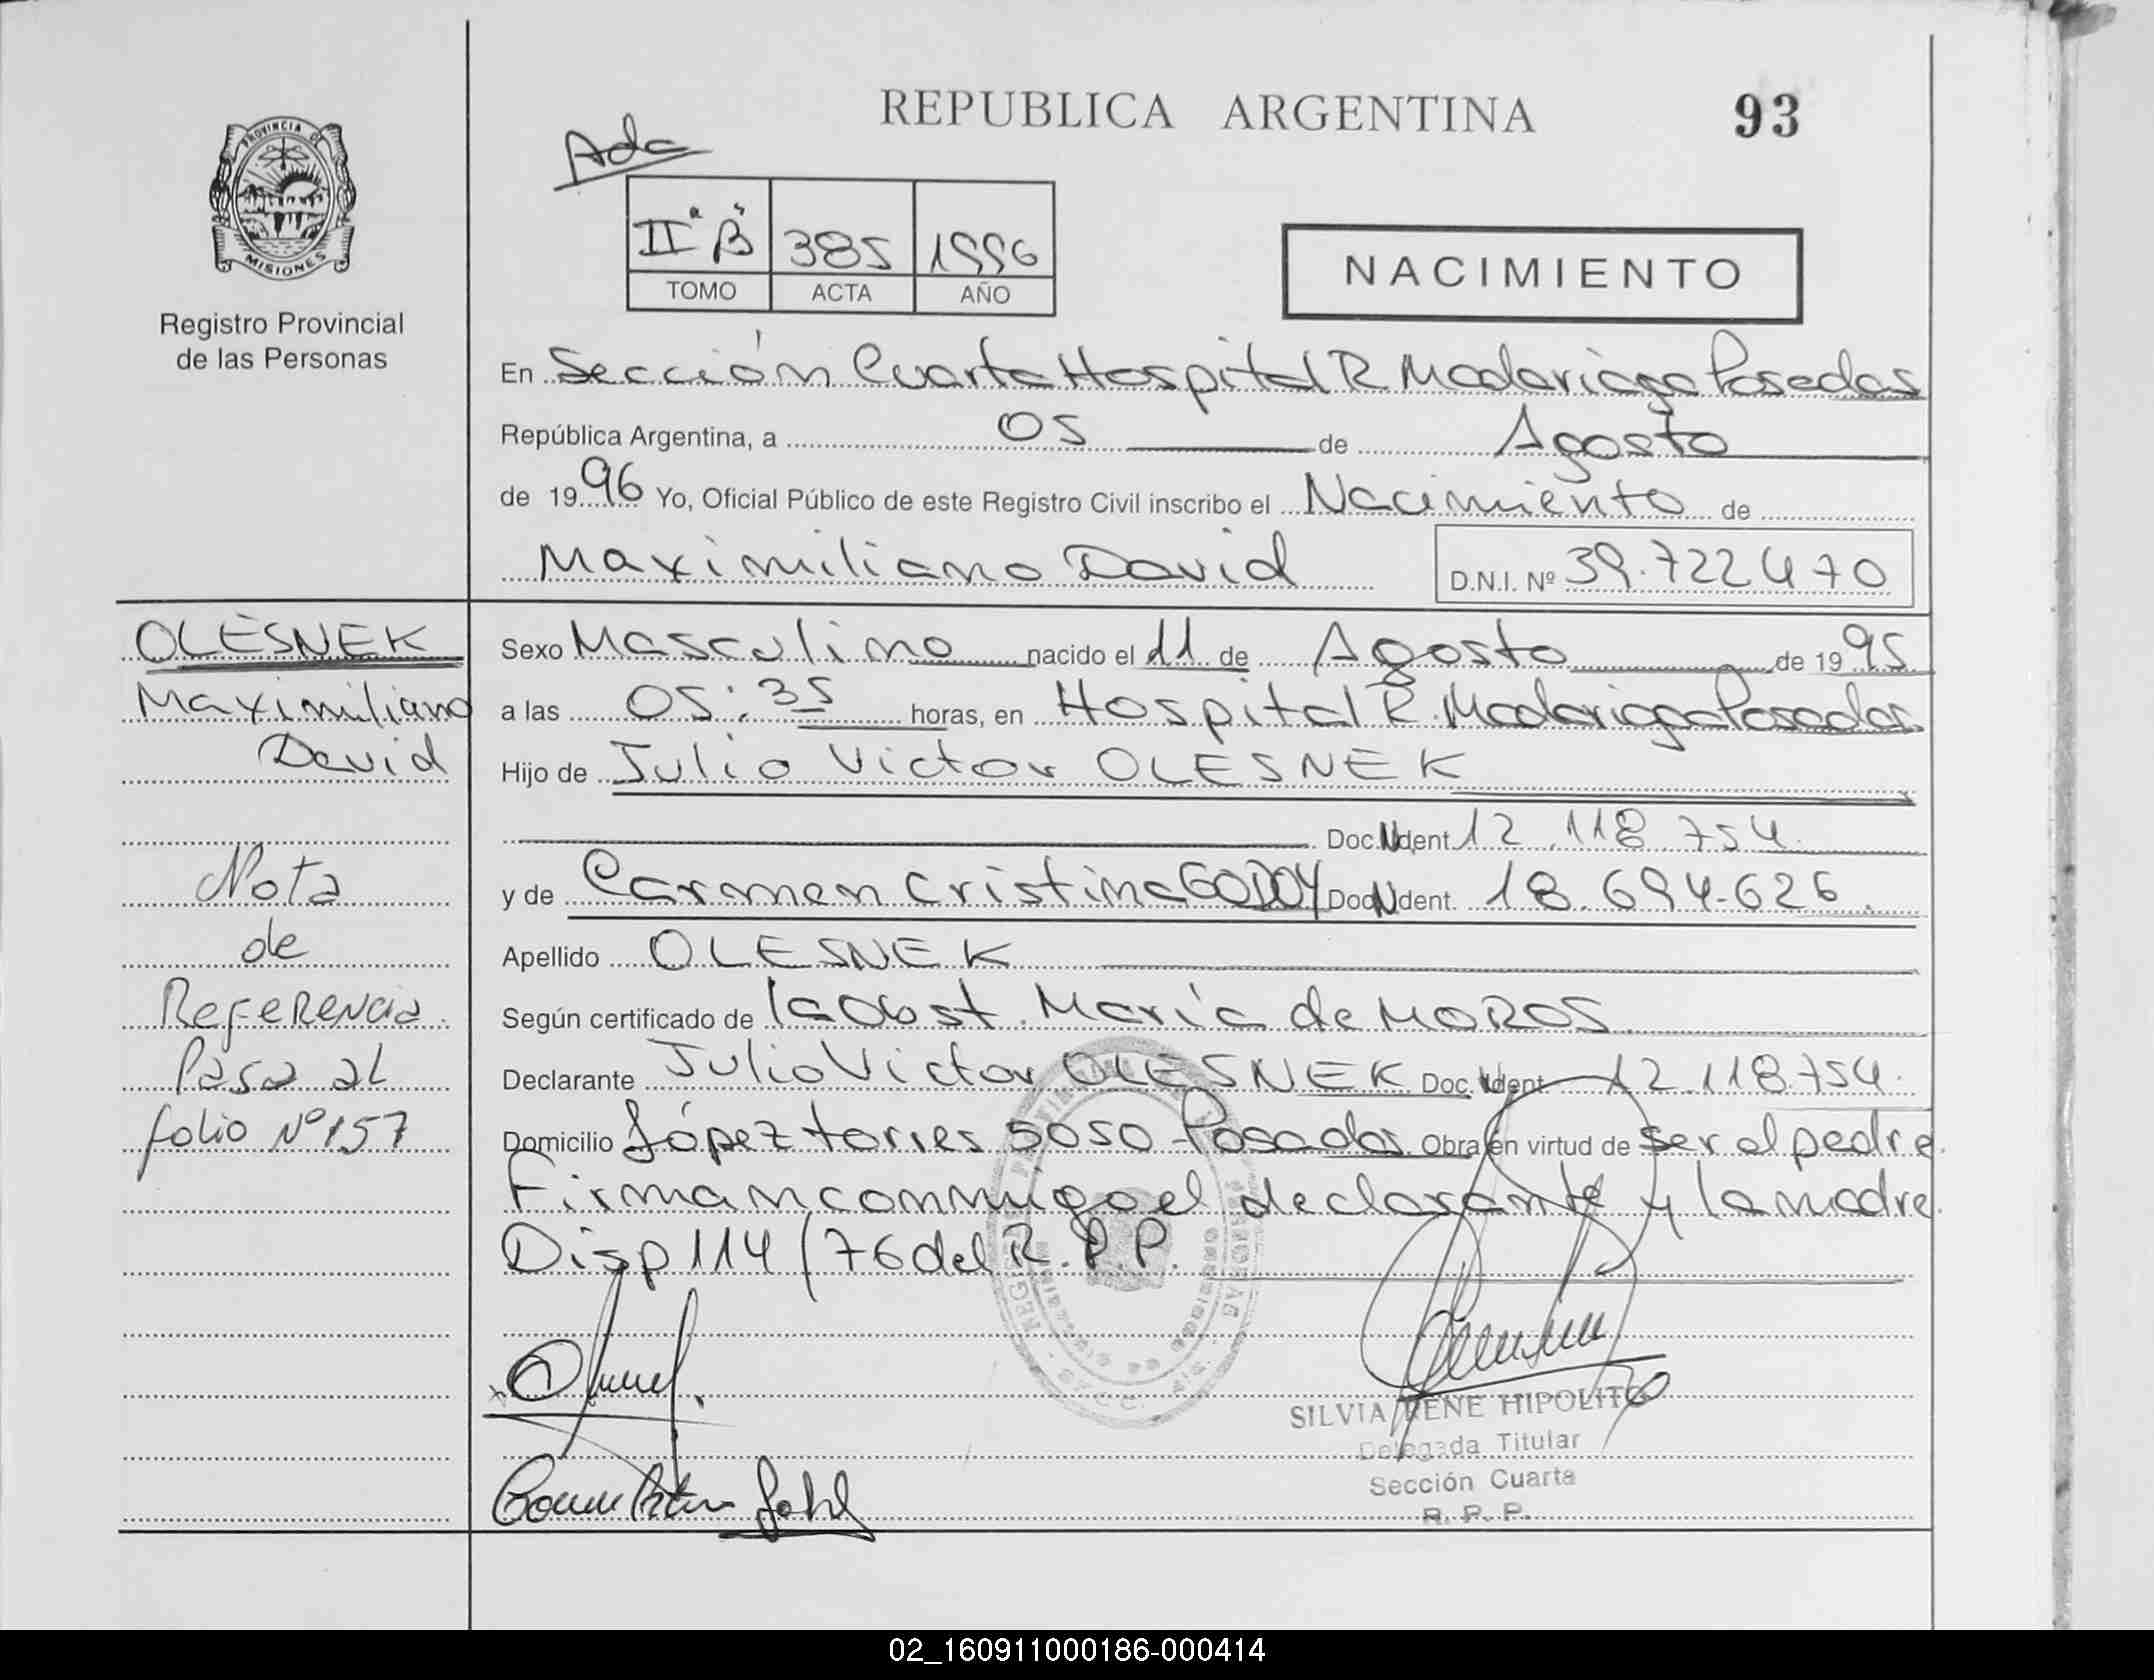 REPUBLICA ARGENTINA
93
Ada
PROVINCIA DE
MISIONES
Registro Provincial
de las Personas
II "B" 385 1996
TOMO ACTA AÑO
NACIMIENTO
En Sección Cuarta Hospital R Madariaga Posadas
República Argentina, a 05 de Agosto
de 1996 Yo, Oficial Público de este Registro Civil inscribo el Nacimiento de
Maximiliano David D.N.I. Nº 39.722470
OLESNEK
Maximiliano
David
Nota
de
Referencia
Pasa al
folio Nº 157
Sexo Masculino nacido el 11 de Agosto de 1995
a las 05:35 horas, en Hospital R. Madariaga Posadas
Hijo de Julio Victor OLESNEK
Doc. Ident 12.118.754.
y de Carmen Cristina GODOY Doc. Ident. 18.694.626.
Apellido OLESNEK
Según certificado de la Obst. María de MOROS
Declarante Julio Victor OLESNEK Doc. Ident 12.118.754.
Domicilio López torres 5050 - Posadas Obra en virtud de ser el padre.
Firman conmigo el declarante y la madre.
Disp 114/76 del R.P.P.
SILVIA IRENE HIPOLITO
Delegada Titular
Sección Cuarta
R. P. P.
02_160911000186-000414